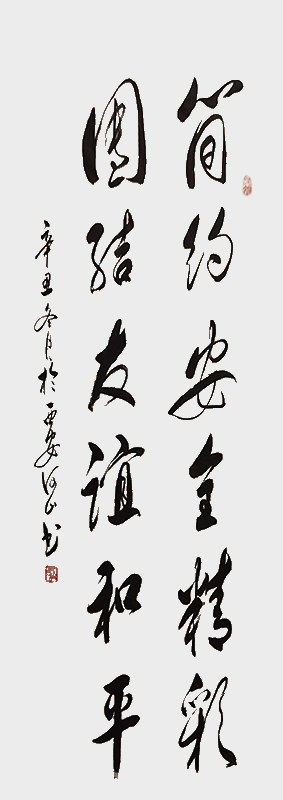 简约安全精彩
團结友谊和平
辛丑冬月於西安河山书